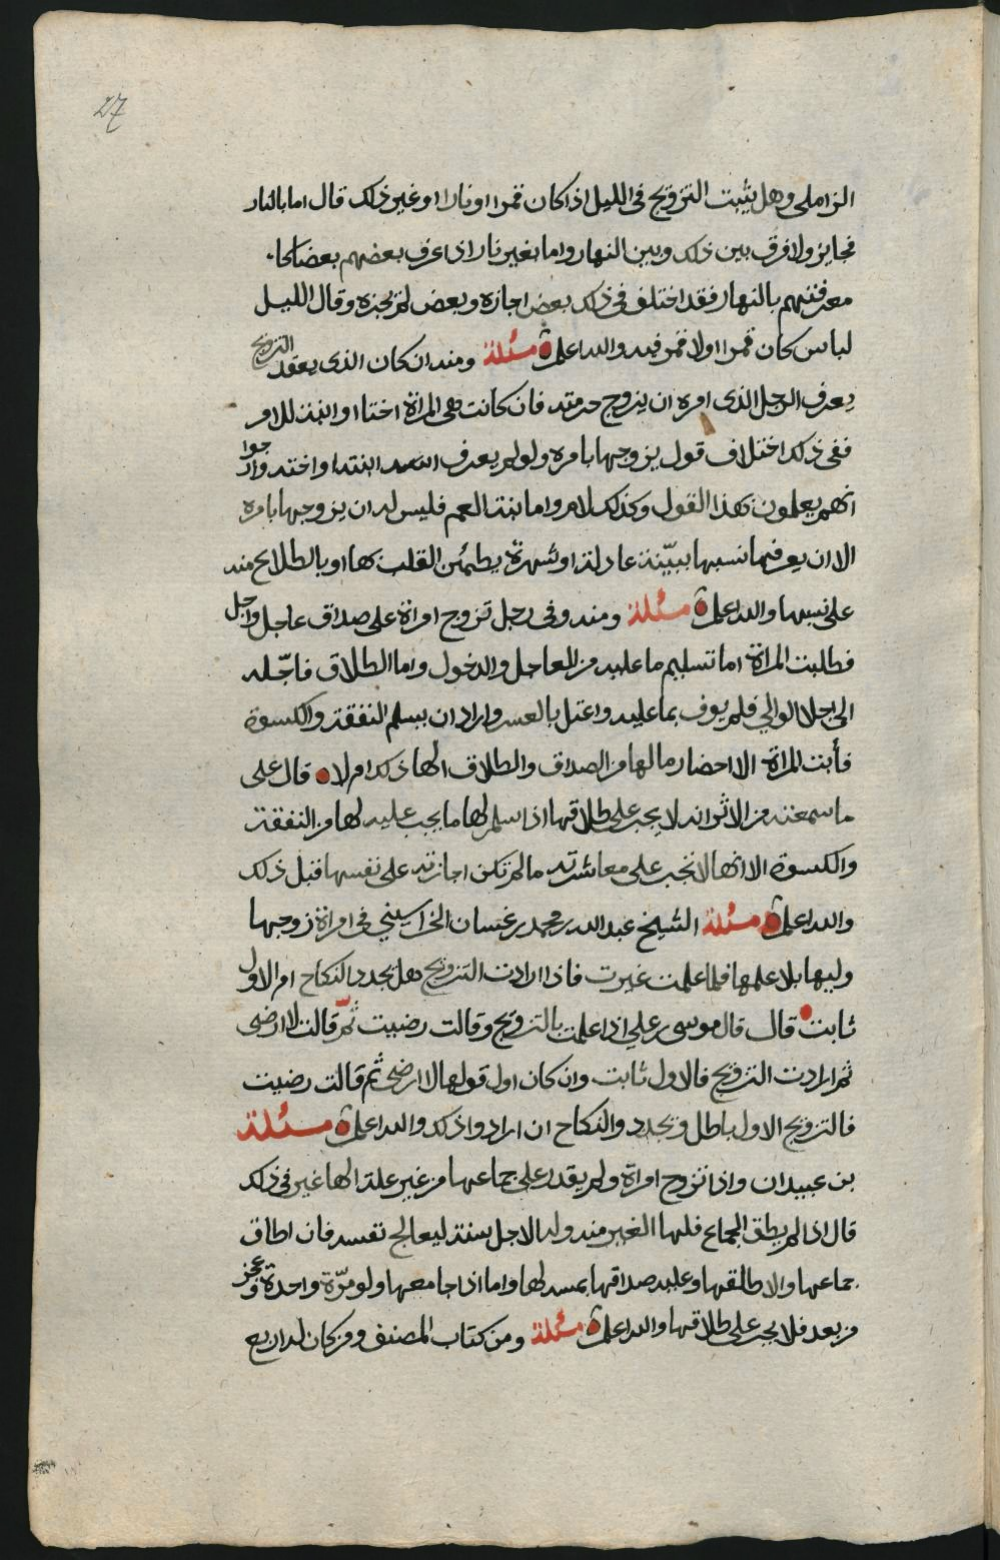 27
الزاملي وهل يثبت التزويج في الليل اذا كان قمرا او نارا او غير ذلك قال اما بالنار
فجايز ولا فرق بين ذلك وبين النهار واما بغير نار اذا عرف بعضهم بعضا كما
معرفتهم بالنهار فقد اختلف في ذلك بعض اجازه وبعض لم يجزه وقال الليل
لباس كان قمرا او لا قمر فيه والله اعلم مسئلة ومنه ان كان الذي يعقد التزويج
يعرف الرجل الذي امره ان يزوج حرمته فان كانت هي المراة اختا او ابنة للامر
ففي ذلك اختلاف قول يزوجها بامره ولو لم يعرف ابنته واخته واجوا
انهم يعملون بهذا القول وكذلك الام واما بنت العم فليس له ان يزوجها بامره
الا ان يعرفهما نسبها ببيّنة عادلة او شهرة يطمئن القلب بها او بالطلاع منه
على نسبها والله اعلم مسئلة ومنه وفي رجل تزوج امراة على صداق عاجل واجل
فطلبت المراة اما تسليم ما عليه من العاجل والدخول واما الطلاق فاجّله
الى اجلا الوالي فلم يوف بما عليه واعتل بالعسر واراد ان يسلم النفقة والكسوة
فأبت المراة الا احضار مالها من الصداق والطلاق الها ذلك ام لا قال على
ما سمعته من الاثر انه لا يجب عليه طلاقها اذا سلم لها ما يجب عليه لها من النفقة
والكسوة الا انها لا تجب على معاشرته ما لم تكن اجازته على نفسها قبل ذلك
والله اعلم مسئلة الشيخ عبد الله بن محمد بن غسان الخراسيني في امراة زوجها
وليها بلا علمها فلما علمت غيرت فاذا ارادت التزويج هل يجدد النكاح ام الاول
ثابت قال قال موسى بن علي اذا علمت بالتزويج وقالت رضيت ثمّ قالت لا ارضى
ثم ارادت التزويج فالاول ثابت وان كان اول قولها لا ارضى ثم قالت رضيت
فالتزويج الاول باطل ويجدد والنكاح ان ارادوا ذلك والله اعلم مسئلة
بن عبيدان واذا تزوج امراة ولم يقدر على جماعها من غير علة الها غير في ذلك
قال اذا لم يطق الجماع فلها الغير منه وله الاجل سنة ليعالج نفسه فان اطاق
جماعها والا طلقها وعليه صداقها بمسه لها واما اذا جامعها ولو مرّة واحدة وعجز
من بعد فلا يجب عليه طلاقها والله اعلم مسئلة ومن كتاب المصنف ومن كان له اربع